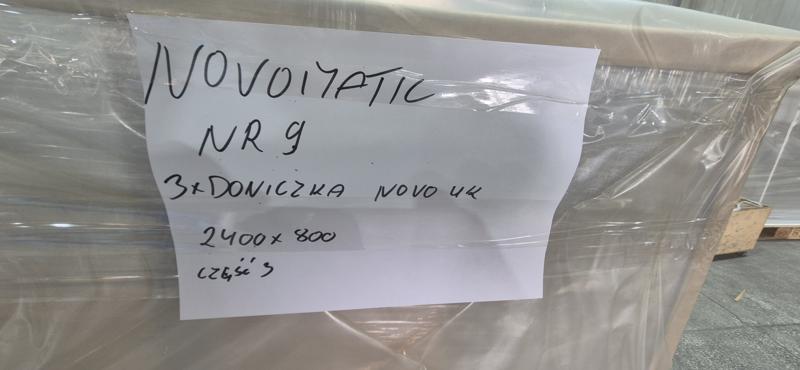 NOVOMATIC
NR 9
3x DONICZKA NOVO UK
2400 x 800
CZĘŚĆ 3